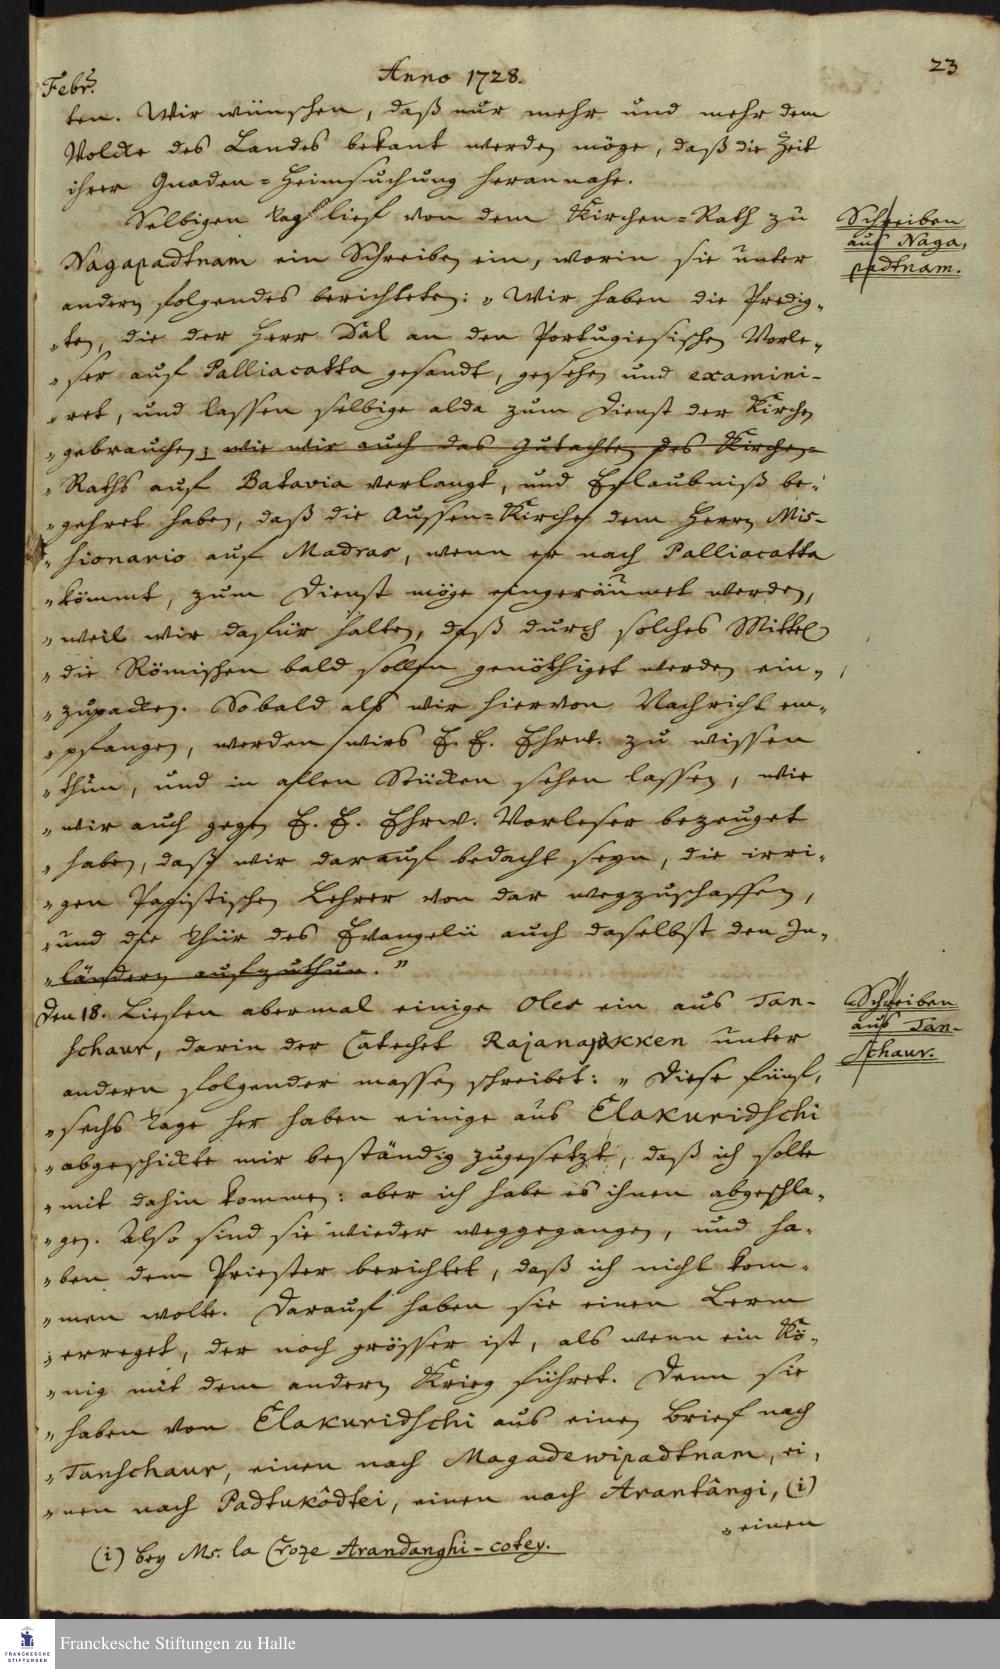 23
Febr.
Anno 1728.
ten. Wir wünschen, daß nur mehr und mehr dem
Volcke des Landes bekant werden möge, daß die Zeit
ihrer Gnaden-Heimsuchung herannahe.
Selbigen Tag lief von dem Kirchen-Rath zu
Nagapadtnam ein Schreiben ein, worin sie unter
andern folgendes berichteten: „Wir haben die Predig-
„ten, die der Herr Dal an den Portugiesischen Vorle-
„ser auf Palliacatta gesandt, gesehen und examini-
„ret, und lassen selbige alda zum Dienst der Kirchen
„gebrauchen; wie wir auch das Gutachten des Kirchen-
„Raths auf Batavia verlangt, und Erlaubniß be-
„gehret haben, daß die Aussen-Kirche dem Herrn Mis-
„sionario auf Madras, wenn er nach Palliacatta
„kömmt, zum Dienst möge eingeräumet werden,
„weil wir dafür halten, daß durch solches Mittel
„die Römischen bald sollen genöthiget werden ein-
„zupacken. Sobald als wir hiervon Nachricht em-
„pfangen, werden wirs E. E. Ehrw. zu wissen
„thun, und in allen Stücken sehen lassen, wie
„wir auch gegen E. E. Ehrw. Vorleser bezeuget
„haben, daß wir darauf bedacht seyn, die irri-
„gen Papistischen Lehrer von dar wegzuschaffen,
„und die Thür des Evangelii auch daselbst den In-
„ländern aufzuthun.”
Schreiben
aus Naga-
padtnam.
Den 18. Liefen abermal einige Oles ein aus Tan-
schaur, darin der Catechet Rajanajakken unter
andern folgender massen schreibet: „Diese fünf,
„sechs Tage her haben einige aus Elakuridschi
„abgeschickte mir beständig zugesetzt, daß ich solte
„mit dahin kommen: aber ich habe es ihnen abgeschla-
„gen. Also sind sie wieder weggegangen, und ha-
„ben dem Priester berichtet, daß ich nicht kom-
„men wolte. Darauf haben sie einen Lerm
„erreget, der noch grösser ist, als wenn ein Kö-
„nig mit dem andern Krieg führet. Denn sie
„haben von Elakuridschi aus einen Brief nach
„Tanschaur, einen nach Magadewipadtnam, ei-
„nen nach Padtukôdtei, einen nach Arantângi, (i)
„einen
Schreiben
aus Tan-
schaur.
(i) bey Mr. la Croze Arandanghi-cotey.
FRANCKESCHE
STIFTUNGEN
Franckesche Stiftungen zu Halle